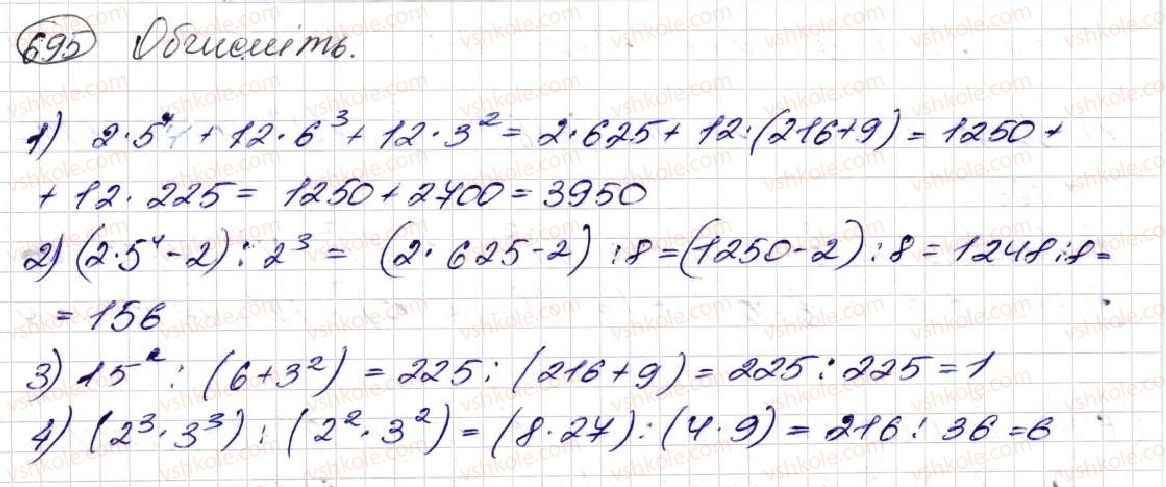 695 Обчисліть.
1) 2·5⁴ + 12·6³ + 12·3² = 2·625 + 12·(216+9) = 1250 +
+ 12·225 = 1250 + 2700 = 3950
2) (2·5⁴-2) : 2³ = (2·625-2) : 8 = (1250-2) : 8 = 1248 : 8 =
= 156
3) 15² : (6+3²) = 225 : (216+9) = 225 : 225 = 1
4) (2³·3³) : (2²·3²) = (8·27) : (4·9) = 216 : 36 = 6